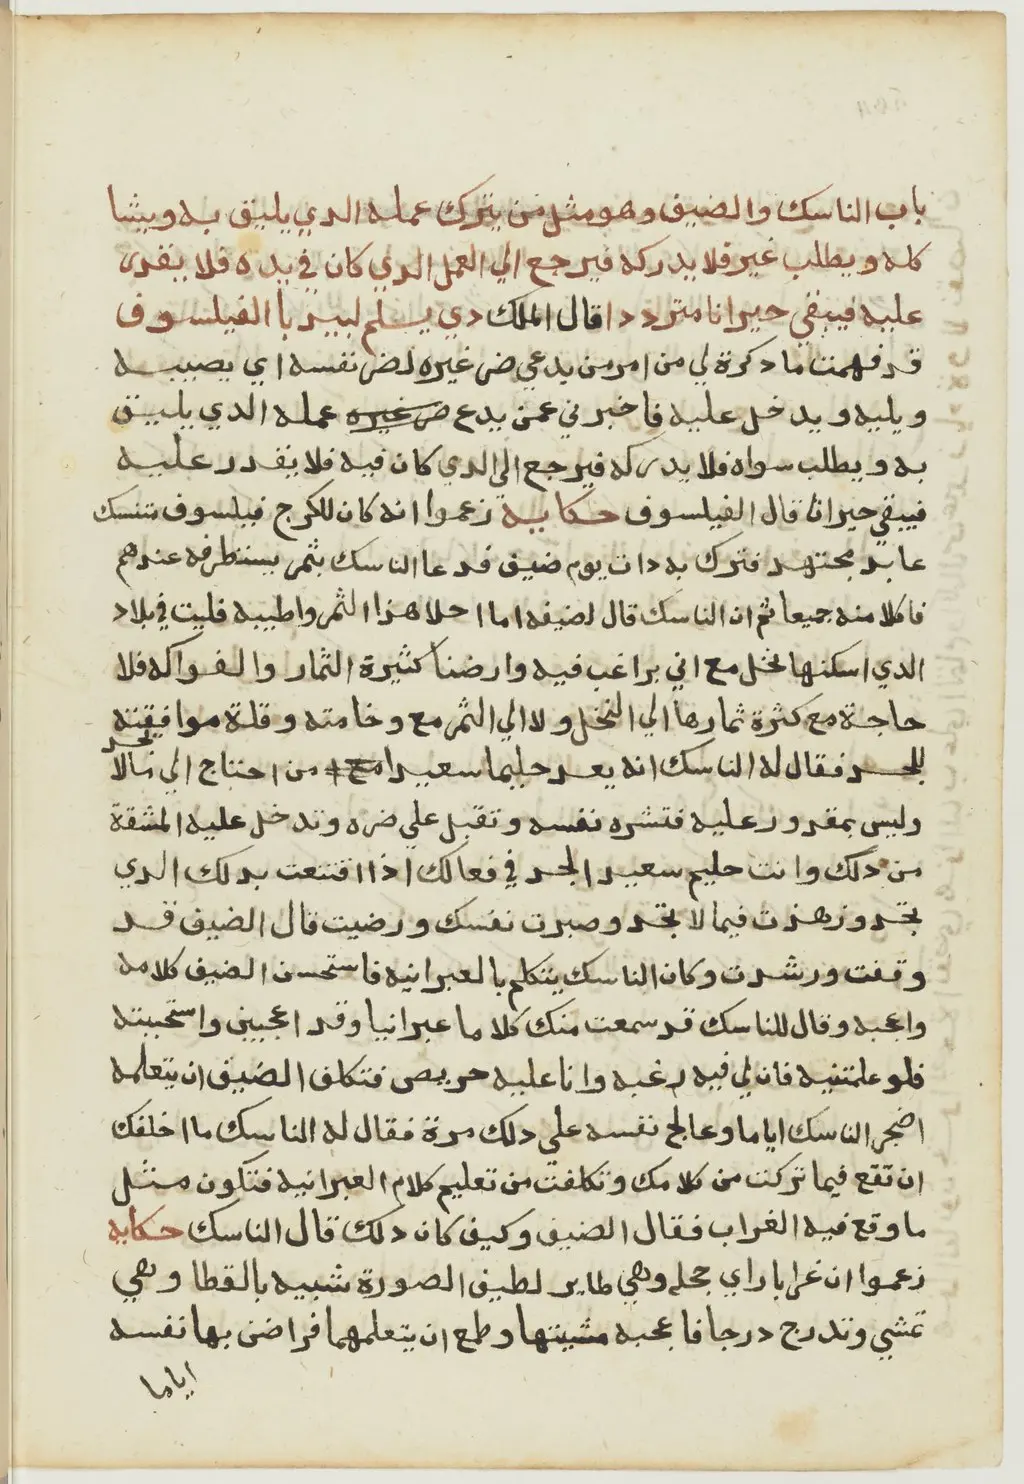 باب الناسك والضيف وهو مثل من يترك عمله الدي يليق به ويشا
كله ويطلب غير فلا يدركه فيرجع الي العمل الدي كان في يده فلا يقدر
عليه فيبقي حيرانا مترددا قال الملك دي يسلم لبيدبا الفيلسوف
قد فهمت ما دكرة لي من امر من يدعي ضر غيره لضر نفسه اي يصيبه
ويليه ويدخل عليه فاخبرني عمن يدع ضر غيره عمله الدي يليق
به ويطلب سواه فلا يدركه فيرجع الي الدي كان فيه فلا يقدر عليه
فيبقي حيرانا قال الفيلسوف حكاية زعموا انه كان للكرج فيلسوف متنسك
عابد مجتهد فترك به دات يوم ضيف فدعا الناسك بثمر يستطرفه عندهم
فاكلا منه جميعا ثم ان الناسك قال لضيفه اما احلا هدا الثمر واطيبه فليت في بلاد
الدي اسكنها نخل مع اني براغب فيه وارضنا كثيرة الثمار والفواكه فلا
حاجة مع كثرة ثمارها الي النخل ولا الي الثمر مع وخامته وقلة موافقته
للجسد فقال له الناسك انه يعد حليما سعيدا من احتاج الي مالا يجد
وليس بمقدور عليه فتشره نفسه وتقبل علي ضره وتدخل عليه المشقة
من دلك وانت حليم سعيد الجد في فعالك اذا اقتنعت بدلك الدي
تجد وزهدت فيما لا تجد وصبرت نفسك ورضيت قال الضيف قد
وقفت ورشدت وكان الناسك يتكلم بالعبرانيه فاستحسن الضيف كلامه
واعجبه وقال للناسك قد سمعت منك كلاما عبرانيا وقد اعجبني واستحببته
فلو علمتنيه فان لي فيه رغبه وانا عليه حريص فتكلف الضيف ان يتعلمه
اضجر الناسك اياما وعالج نفسه علي دلك مرة فقال له الناسك ما اخلفك
ان تقع فيما تركت من كلامك وتكلفت من تعليم كلام العبرانيه فتكون مثل
ما وقع فيه الغراب فقال الضيف وكيف كان دلك قال الناسك حكايه
زعموا ان غرابا راي حجله وهي طاير لطيف الصورة شبيه بالقطا وهي
تمشي وتدرج درجا فاعجبه مشيتها وطمع ان يتعلمهما فراضي بها نفسه
اياما